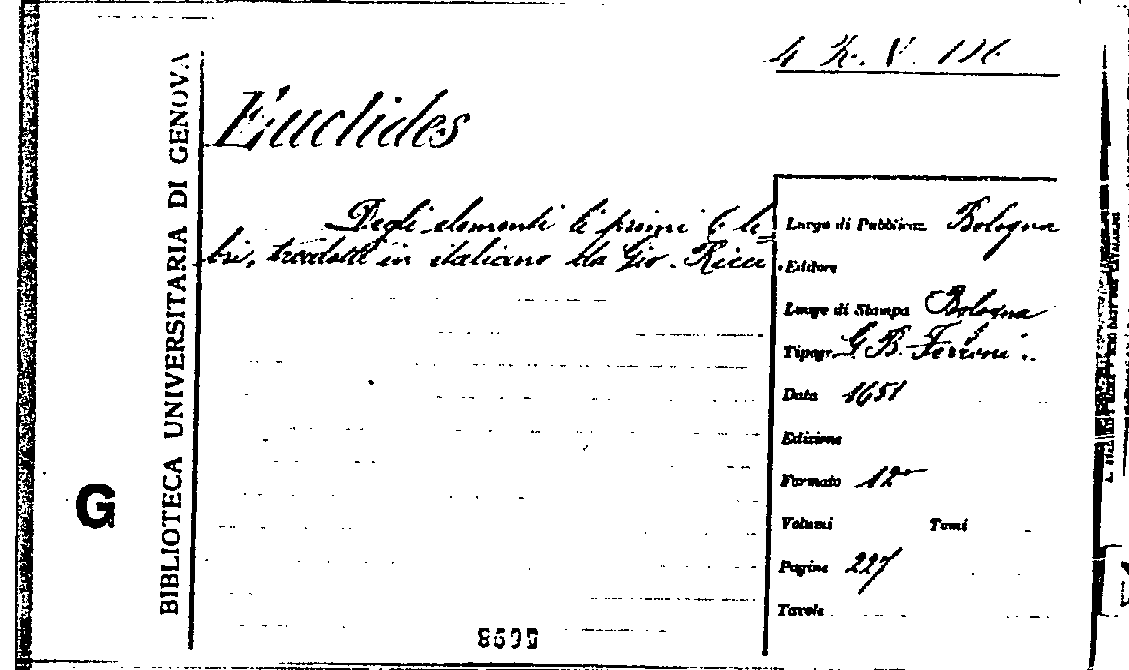 4 V. 126
BIBLIOTECA UNIVERSITARIA DI GENOVA
G
Euclides
Degli elementi li primi 6 li=
bri, tradotti in italiano da Gio. Ricci.
Luogo di Pubblicaz. Bologna
Editore
Luogo di Stampa Bologna
Tipogr. G. B. Ferroni.
Data 1651
Edizione
Formato 12°
Volumi Tomi
Pagine 227
Tavole